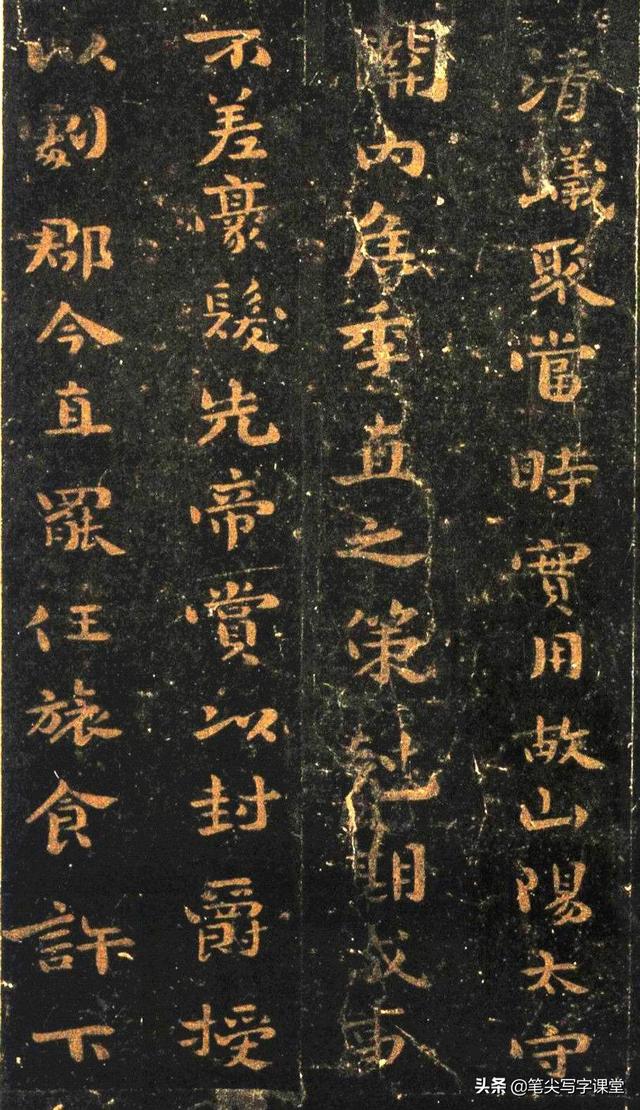 清蟻聚當時實用故山陽太守
關內侯季直之策尅期成事
不差豪髮先帝賞以封爵授
以劇郡今直罷任旅食許下
头条 @笔尖写字课堂